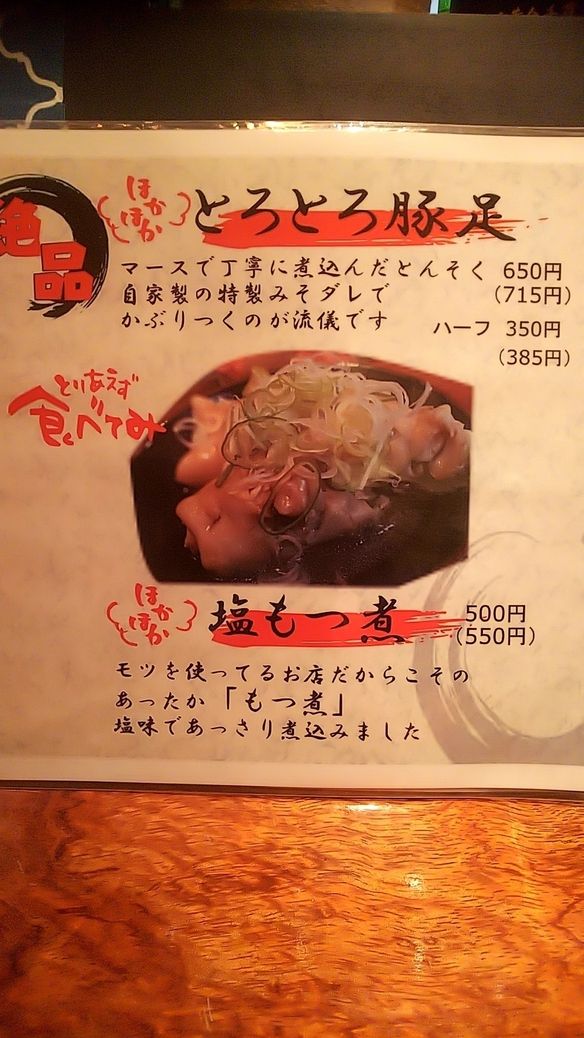 絶品
ほかほか
とろとろ豚足
マースで丁寧に煮込んだとんそく 650円
自家製の特製みそダレで (715円)
かぶりつくのが流儀です ハーフ 350円
(385円)
とりあえず
食べてみ
ほかほか
塩もつ煮 500円
(550円)
モツを使ってるお店だからこその
あったか「もつ煮」
塩味であっさり煮込みました